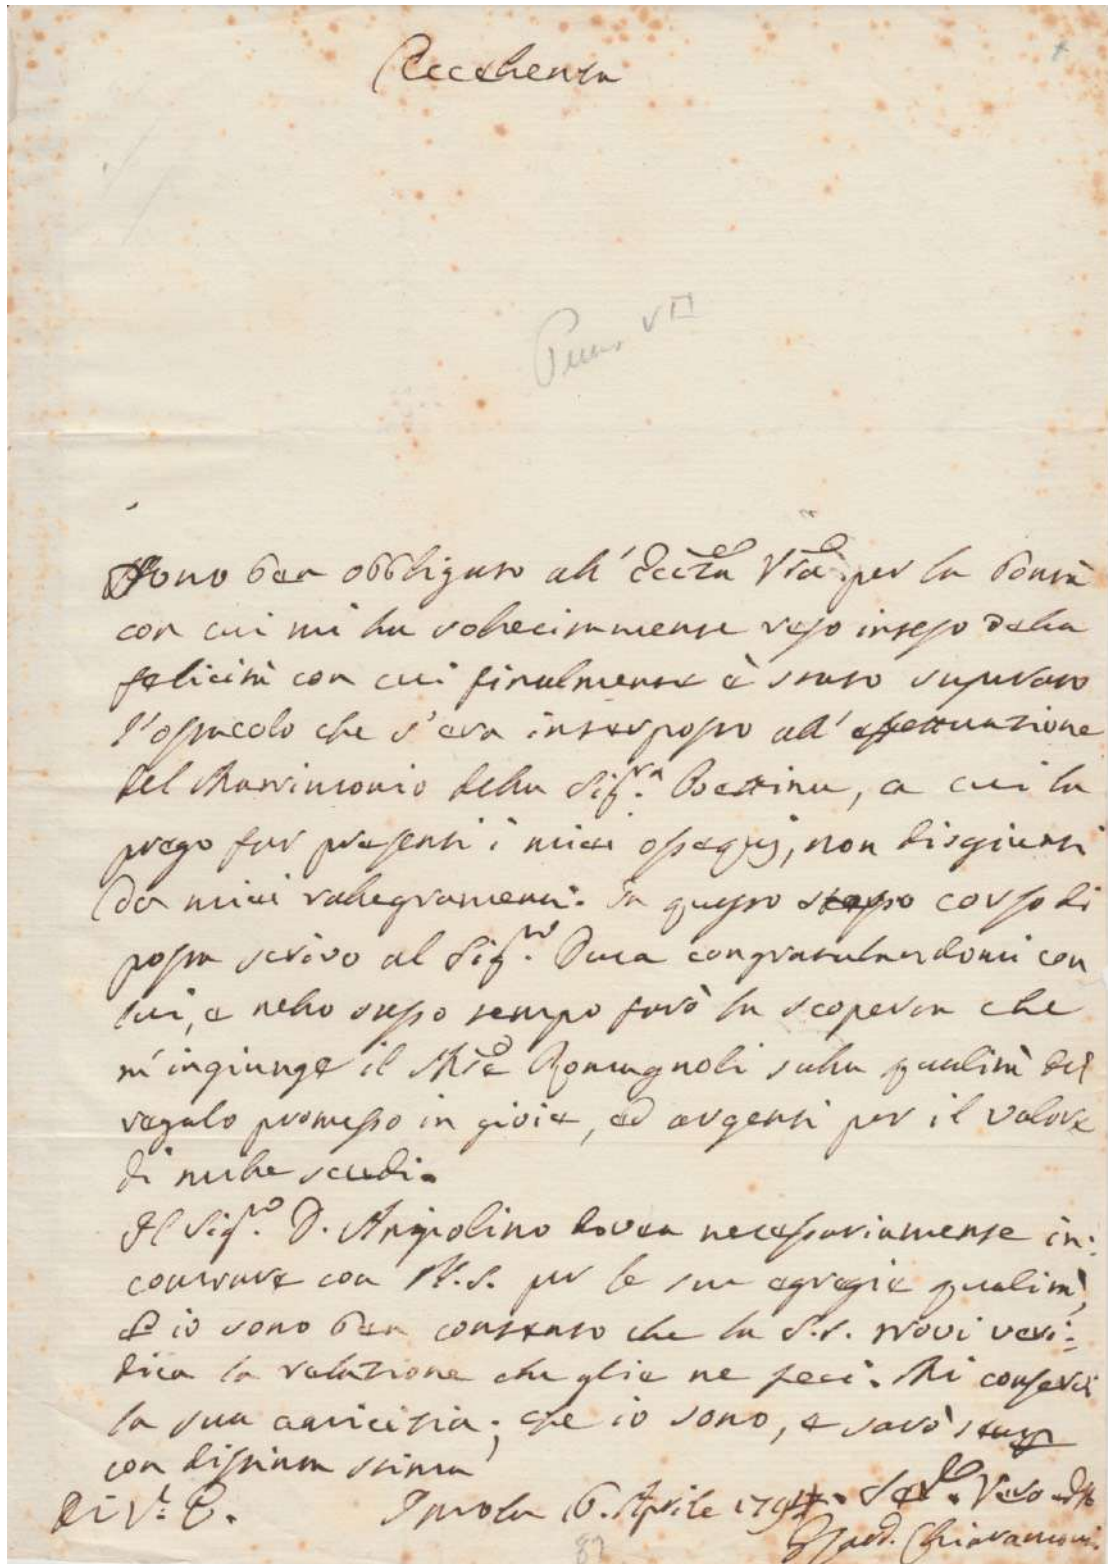 Eccellenza
Pius VII
Sono ben obbligato all' Eccza Vra per la bontà
con cui mi ha sollecitamente reso inteso della
felicità con cui finalmente è stato superato
l'ostacolo che s'era interposto all' effettuazione
del Matrimonio della Sigra. Bettina, a cui la
prego far presenti i miei ossequj, non disgiunti
da miei rallegramenti. In questo stesso corso di
posta scrivo al Sigr. Duca congratulandomi con
lui, e nello stesso tempo farò la scoperta che
m'ingiunge il Romagnoli sulla qualità del
regalo promesso in gioie, ed argenti per il valore
di mille scudi.
Il Sigr. D. Angiolino dovea necessariamente in:
contrare con N.S. per le sue egregie qualità,
ed io sono ben contento che la S.S. trovi veri:
dica la relazione che glie ne feci. Mi conservi
la sua amicizia; che io sono, e sarò
con distinta stima
di V. E. Imola 6. Aprile Vero
Card. Chiaramonti.